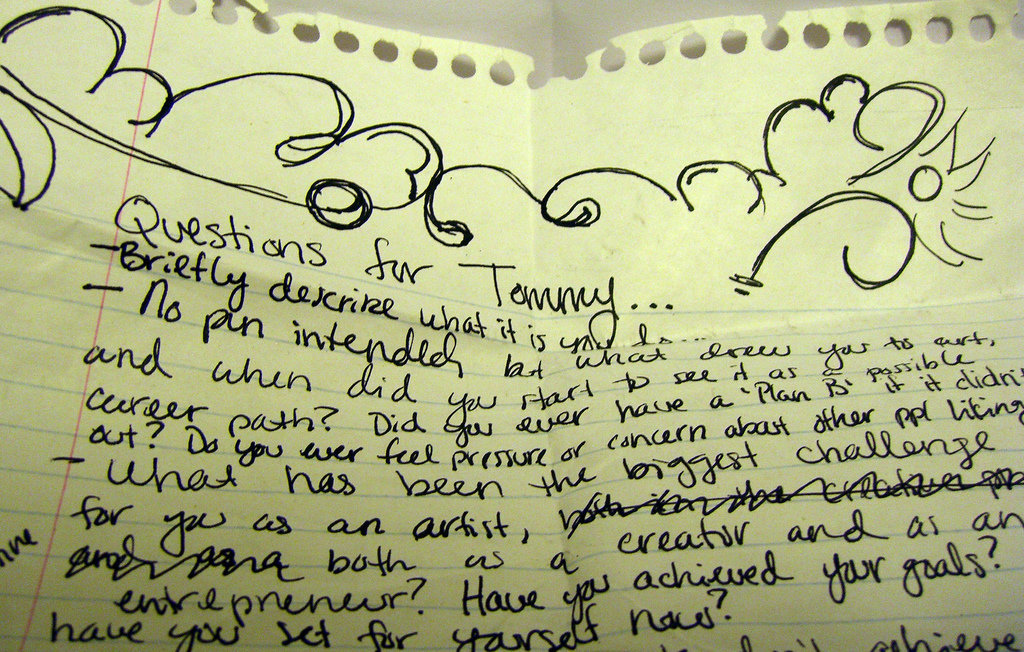 Questions for Tommy...
- Briefly describe what it is you do...
- No pun intended, but what drew you to art,
and when did you start to see it as a possible
career path? Did you ever have a "Plan B" if it didn't
out? Do you ever feel pressure or concern about other ppl liking
- What has been the biggest challenge
for you as an artist, both in the creative
and both as a creator and as an
entrepreneur? Have you achieved your goals?
have you set for yourself now?
achieve